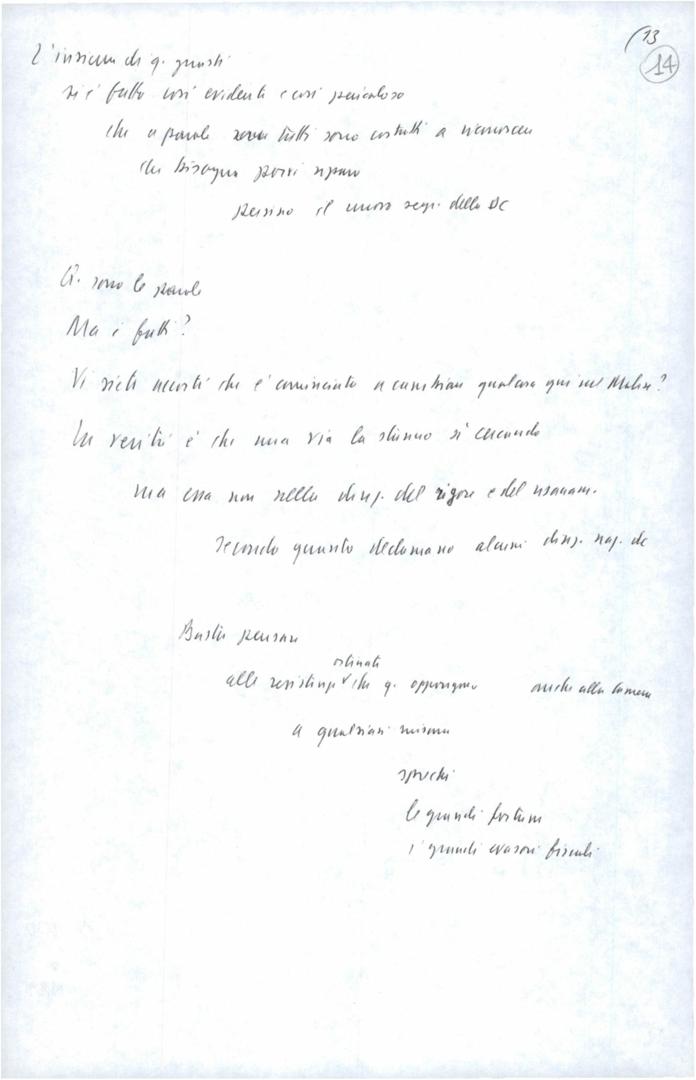 (13
14
L'insieme di q. guasti
si è fatto così evidente e così pericoloso
che a parole tutti sono costretti a riconoscere
che bisogna porvi riparo
persino il nuovo segr. della DC
Q. sono le parole
Ma i fatti?
Vi siete accorti che è cominciato a cambiare qualcosa qui nel Molise?
La verità è che una via la stanno sì cercando
ma essa non nella direz. del rigore e del risanam.
secondo quanto declamano alcuni dirig. naz. dc
Basta pensare
ostinate
alle resistenze che q. oppongono anche alla Camera
a qualsiasi misura
sprechi
le grandi fortune
i grandi evasori fiscali